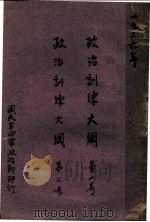 一九二六年
政治訓練大綱 第一号
政治訓練大綱 第二号
國民革命軍政治部印行